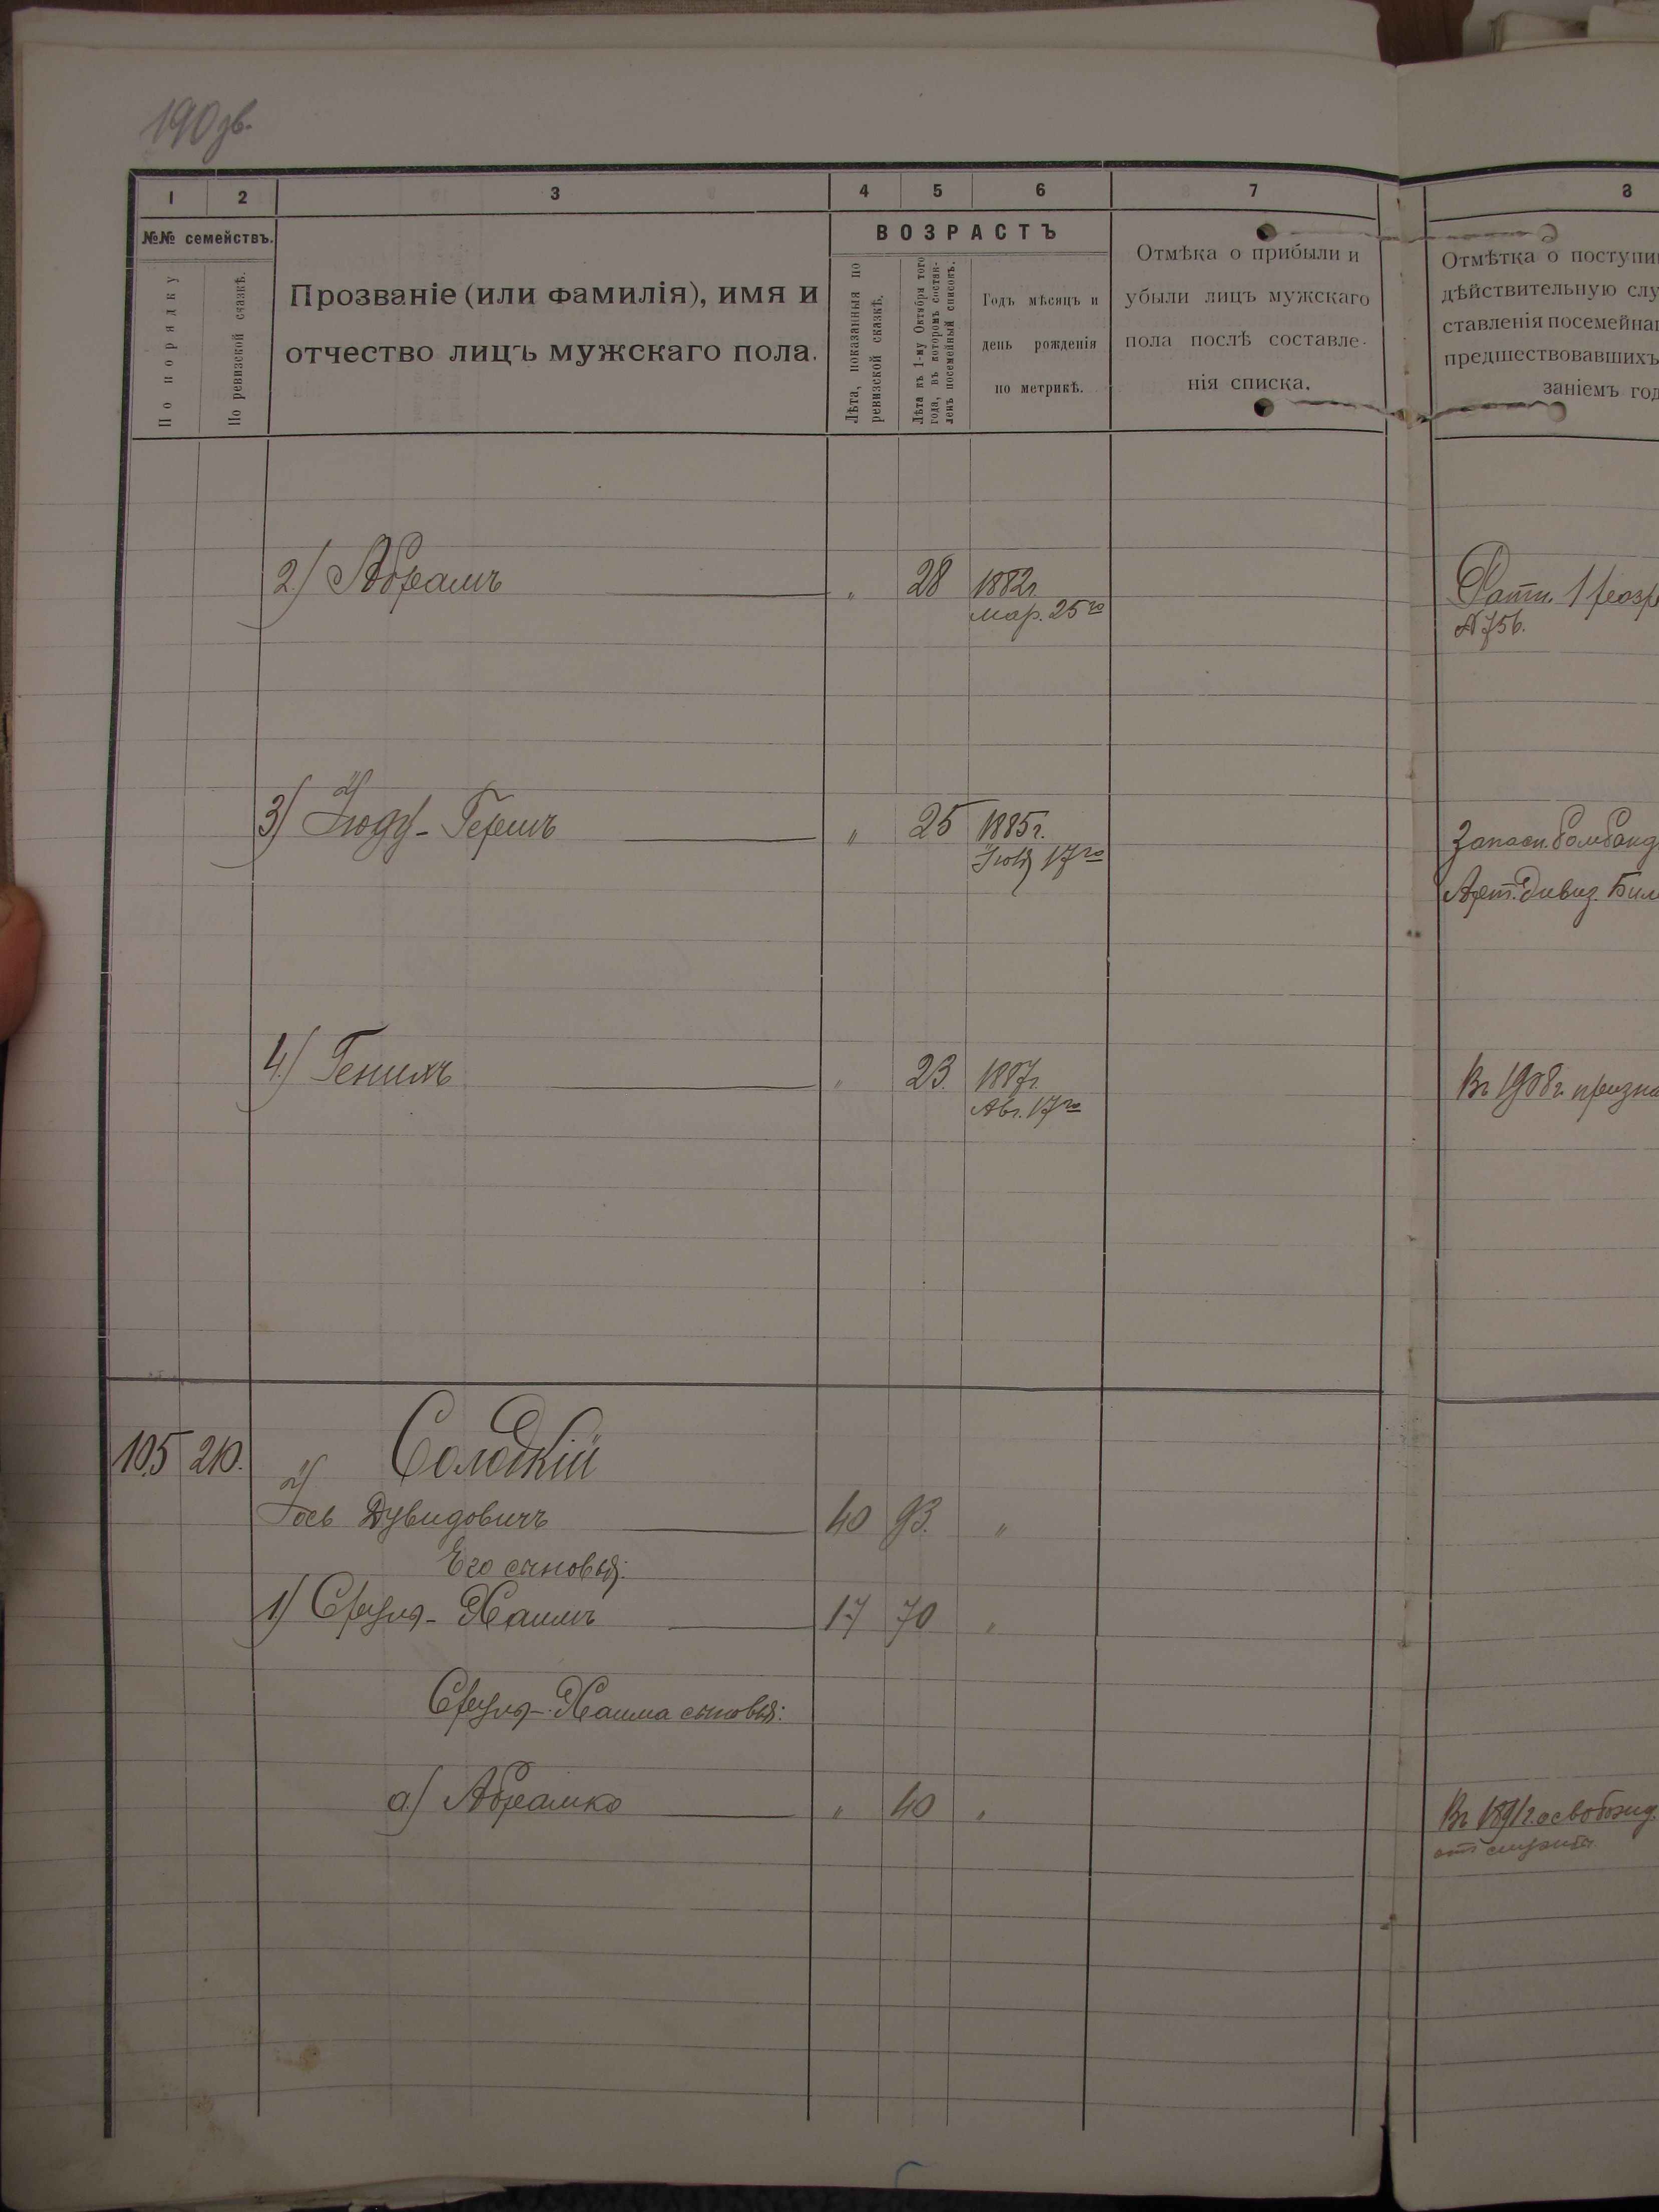 190 зв.
1 2 3 4 5 6 7 8
№№ семействъ.
По порядку
По ревизской сказкѣ.
Прозваніе (или фамилія), имя и
отчество лицъ мужскаго пола.
ВОЗРАСТЪ
Лѣта, показанныя по
ревизской сказкѣ.
Лѣта къ 1-му Октября того
года, въ которомъ состав-
ленъ посемейный списокъ.
Годъ мѣсяцъ и
день рожденія
по метрикѣ.
Отмѣка о прибыли и
убыли лицъ мужскаго
пола послѣ составле-
нія списка.
Отмѣтка о поступи
дѣйствительную слу
ставленія посемейна
предшествовавшихъ
заніемъ год
2.) Абрамъ " 28 1882г.
Мар. 25го
Ратн. 1 разр
№ 756.
3) Іюду-Гершъ " 25 1885г.
17го
Запасн. бомбанд
Арт. Дивиз. Бил
4.) Генихъ " 23. 1887г.
Авг. 17го
Въ 1908г. призна
105 210. Солодкій
Іось Дувидовичъ 40 93. "
Его сыновья:
1) Сруль-Хаимъ 17 70 "
Сруля-Хаима сыновья:
а.) Абрамко " 40 "
Въ 1891г. освобожд.
отъ службы.